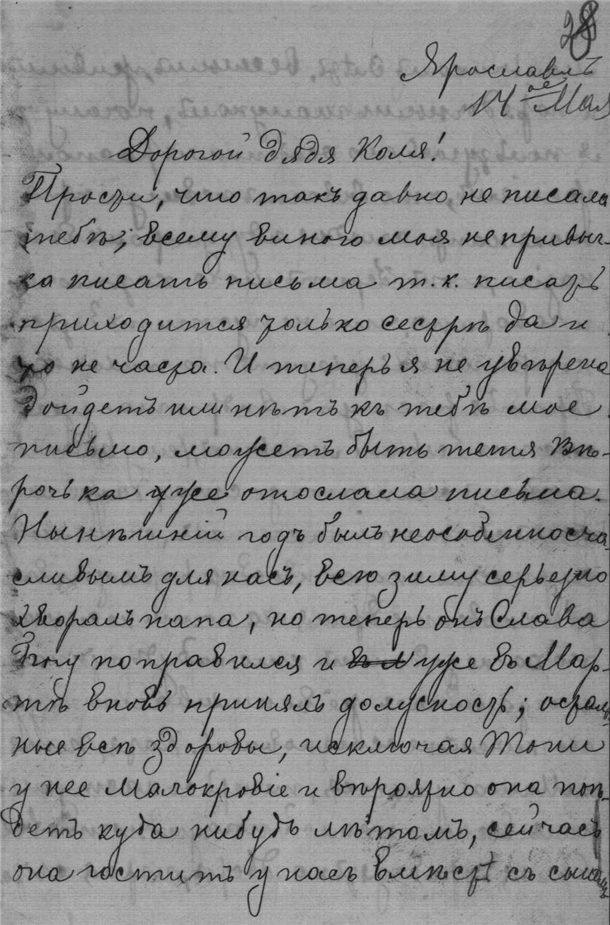 28
Ярославль
14 ое Мая
Дорогой дядя Коля!
Прости, что такъ давно не писала
тебѣ; всему виною моя непривыч-
ка писать письма т.к. писать
приходится только сестрѣ да и
то не часто. И теперь я не увѣрена
дойдетъ или нѣтъ къ тебѣ мое
письмо, можетъ быть тетя Вѣ-
рочька уже отослала письма.
Нынѣшній годъ былъ неособенно сча-
сливымъ для насъ, всю зиму серьезно
хворалъ папа, но теперь онъ Слава
Богу поправился и уже въ Мар-
тѣ вновь принялъ должность; осталь
ные всѣ здоровы, исключая Тони
у нее малокровіе и вѣроятно она поѣ-
детъ куда нибудь лѣтомъ, сейчасъ
она гоститъ у насъ вмѣстѣ съ сыномъ